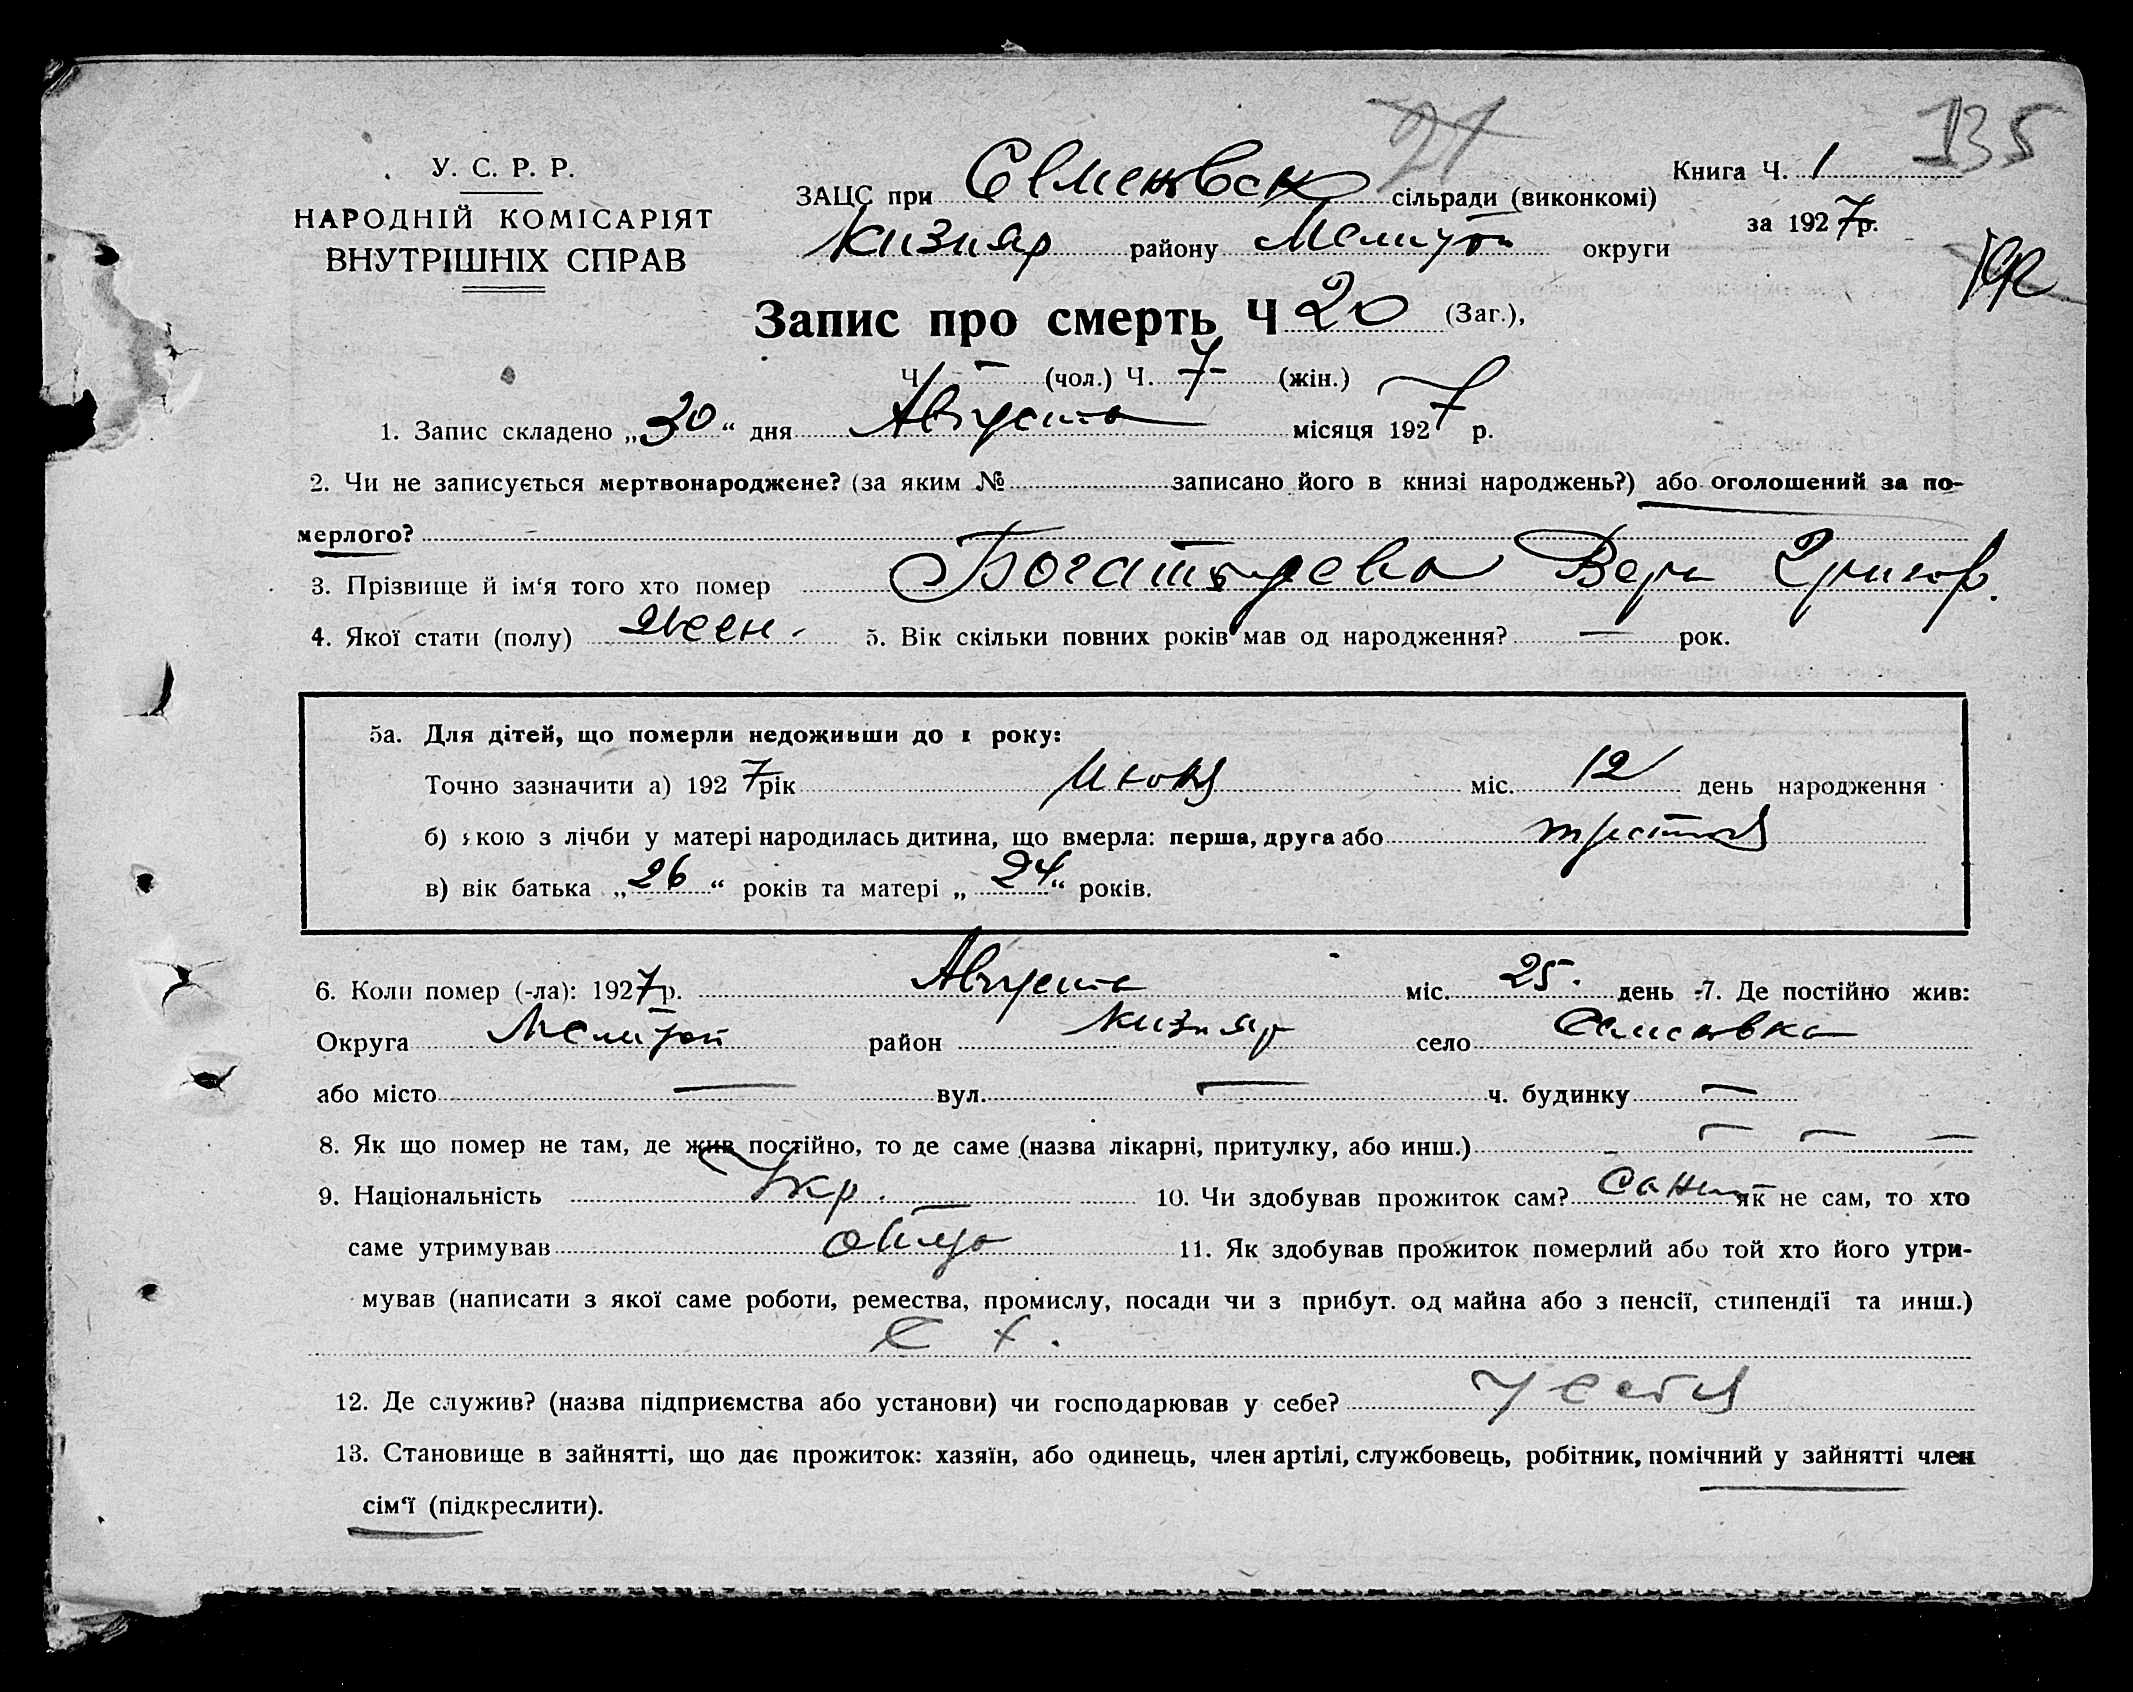 135
21
У. С. Р. Р.
НАРОДНІЙ КОМІСАРІЯТ
ВНУТРІШНІХ СПРАВ
ЗАЦС при Семеновск сільради (виконкомі)
Кизияр району Мелитоп округи
Книга Ч. 1
за 1927 р.
Запис про смерть Ч 20 (Заг.),
Ч. – (чол.) Ч. 7 (жін.)
1. Запис складено „30“ дня Августа місяця 1927 р.
2. Чи не записується мертвонароджене? (за яким № записано його в книзі народжень?) або оголошений за по-
мерлого? –
3. Прізвище й ім‘я того хто помер Богатырева Вера Григор.
4. Якої стати (полу) жен. 5. Вік скільки повних років мав од народження? — рок.
5а. Для дітей, що померли недоживши до 1 року:
Точно зазначити а) 1927 рік міс. 12 день народження
б) якою з лічби у матері народилась дитина, що вмерла: перша, друга або третья
в) вік батька „26“ років та матері „24“ років.
6. Коли помер (-ла): 1927 р. Августа міс. 25. день 7. Де постійно жив:
Округа Мелитоп район Кизияр село Семеновка
або місто — вул. — ч. будинку —
8. Як що помер не там, де жив постійно, то де саме (назва лікарні, притулку, або инш.) — — —
9. Національність Укр. 10. Чи здобував прожиток сам? як не сам, то хто
саме утримував отец 11. Як здобував прожиток померлий або той хто його утри-
мував (написати з якої саме роботи, ремества, промислу, посади чи з прибут. од майна або з пенсії, стипендії та инш.)
с х.
12. Де служив? (назва підприємства або установи) чи господарював у себе? у себя
13. Становище в зайнятті, що дає прожиток: хазяїн, або одинець, член артілі, службовець, робітник, помічний у зайнятті член
сім‘ї (підкреслити).